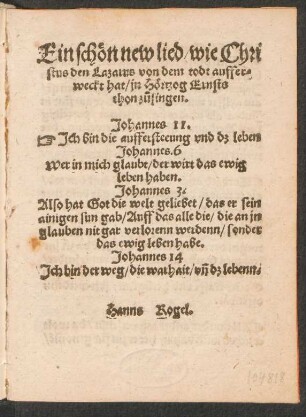 Ein schön new lied/wie Chri
stus den Lazarus von dem todt auffer-
weckt hat/in Hörtzog Ernsts
thon zůsingen.
Johannes 11.
☞ Ich bin die aufferstecung vnd dz leben
Johannes. 6
Wer in mich glaubt/der wirt das ewig
leben haben.
Johannes 3.
Also hat Got die welt geliebet/das er sein
ainigen sun gab/Auff das alle die/die an jn
glauben nit gar verlorenn werdenn/sonder
das ewig leben habe.
Johannes 14
Ich bin der weg/die warhait/vn̄ dz lebenn.
Hanns Kogel.